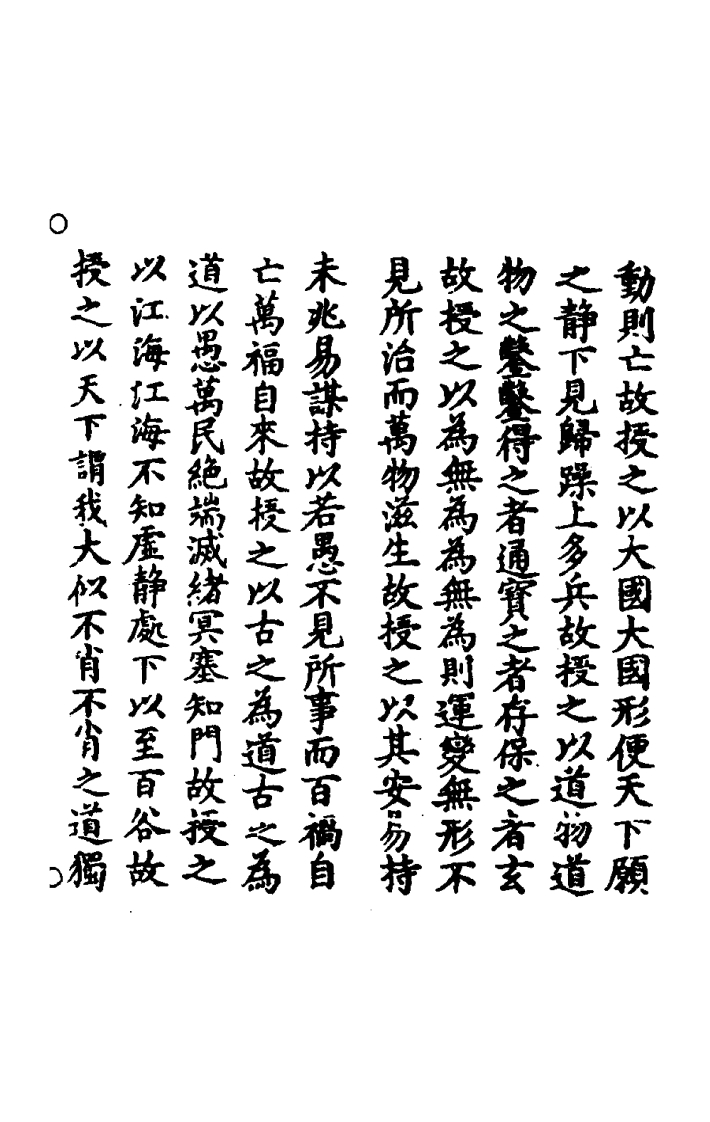 動則亡故授之以大國大國形便天下願
之静下見歸躁上多兵故授之以道物道
物之鑿鑿得之者通寳之者存保之者玄
故授之以為無為為無為則運變無形不
見所治而萬物滋生故授之以其安易持
未兆易謀持以若愚不見所事而百禍自
亡萬福自來故授之以古之為道古之為
道以愚萬民絶端滅緒冥塞知門故授之
以江海江海不知虚静處下以至百谷故
授之以天下謂我大似不肖不肖之道獨